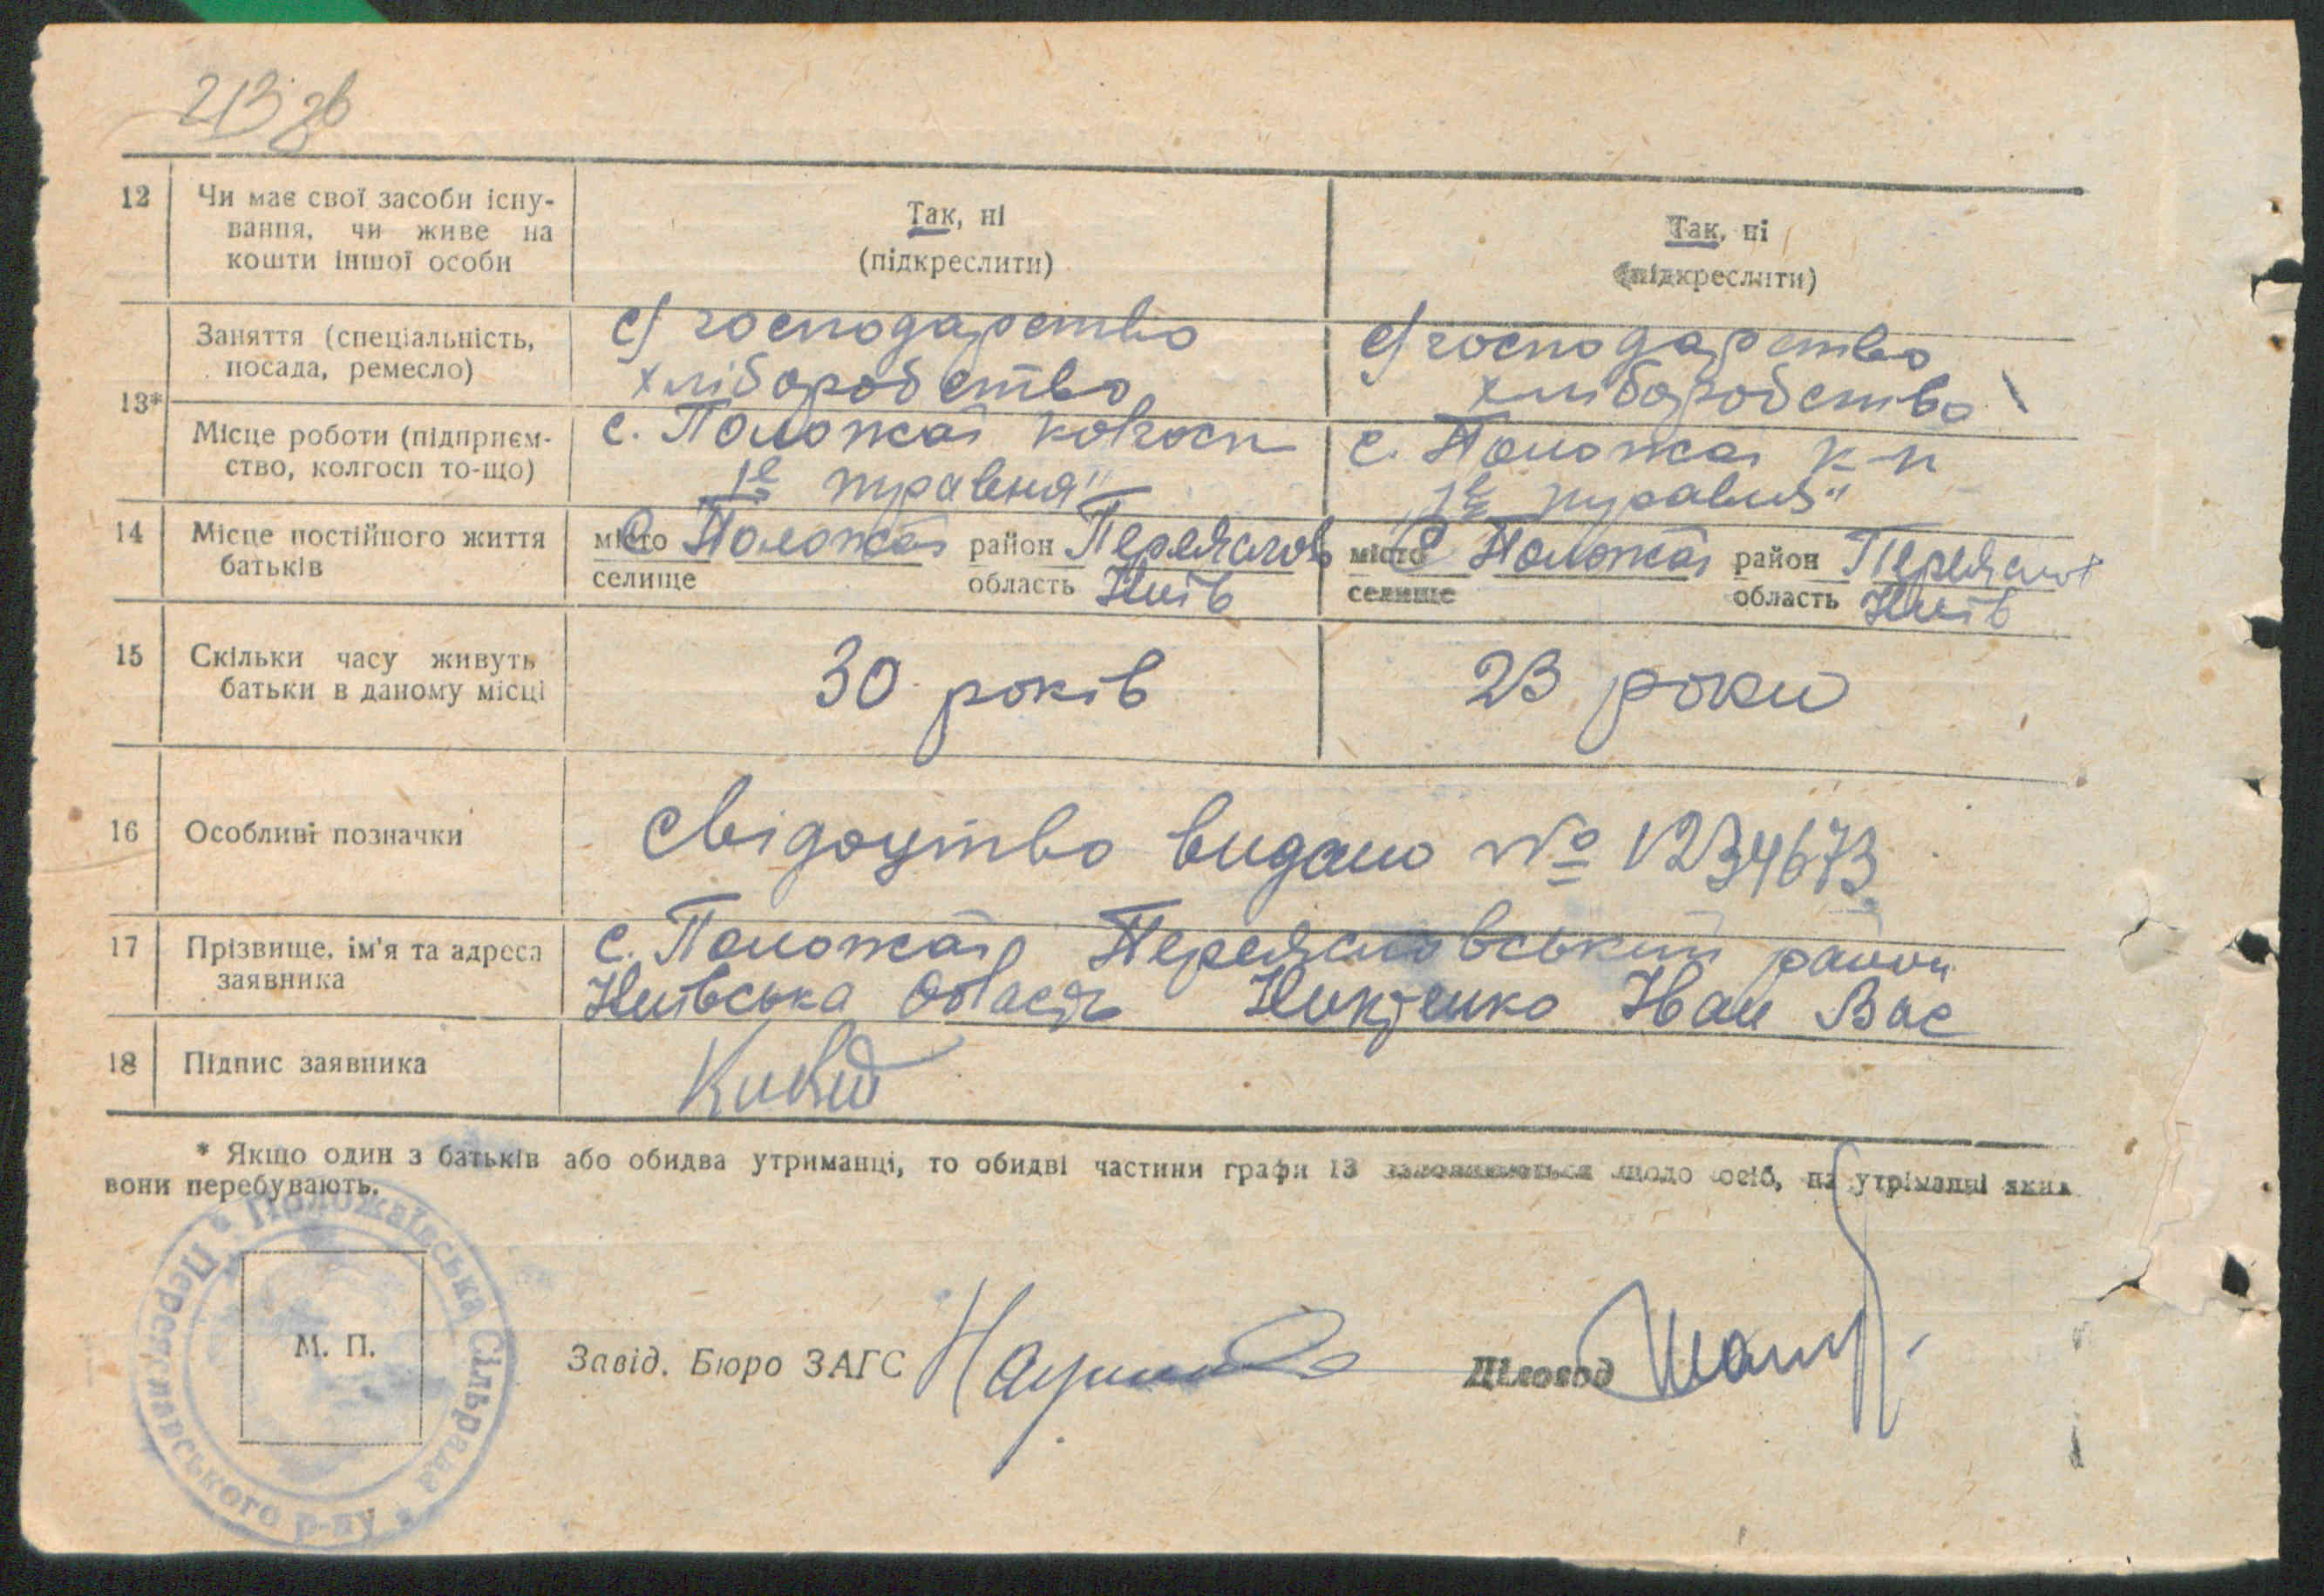 213 зв
12 Чи має свої засоби існу-
вання, чи живе на
кошти іншої особи
Так, ні
(підкреслити)
Так, ні
(підкреслити)
13* Заняття (спеціальність,
посада, ремесло)
с/господарство
хліборобство
с/господарство
хліборобство
Місце роботи (підприєм-
ство, колгосп то-що)
с. Положаї колгосп
1е травня"
с. Положаї к-п
„1е травня"
14 Місце постійного життя
батьків
місто с Положаї район Переяслов
селище область Київ
місто с Положаї район Переяслов
селище область Київ
15 Скільки часу живуть
батьки в даному місці
30 років
23 роки
16 Особливі позначки
свідоцтво видано № 1234673
17 Прізвище, ім'я та адреса
заявника
с. Положаї Переясловський район
Київська область Іван Вас
18 Підпис заявника
* Якщо один з батьків або обидва утриманці, то обидві частини графи 13 щодо осіб, на утріманні яких
вони перебувають.
Положаївська Сільрада • Переяславського р-ну •
М. П.
Завід. Бюро ЗАГС
Діловод